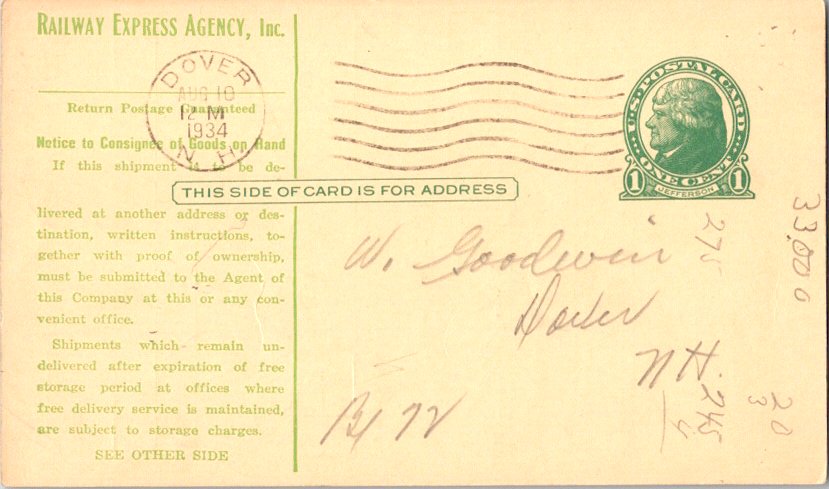 RAILWAY EXPRESS AGENCY, Inc.
Return Postage Guaranteed
Notice to Consignee of Goods on Hand
If this shipment is to be de-
livered at another address or des-
tination, written instructions, to-
gether with proof of ownership,
must be submitted to the Agent of
this Company at this or any con-
venient office.
Shipments which remain un-
delivered after expiration of free
storage period at offices where
free delivery service is maintained,
are subject to storage charges.
SEE OTHER SIDE
DOVER
AUG 10
12 M
1934
N. H.
THIS SIDE OF CARD IS FOR ADDRESS
U·S·POSTAL CARD
ONE CENT
1 JEFFERSON 1
W. Goodwin
Dover
NH.
275
245
4
20
3